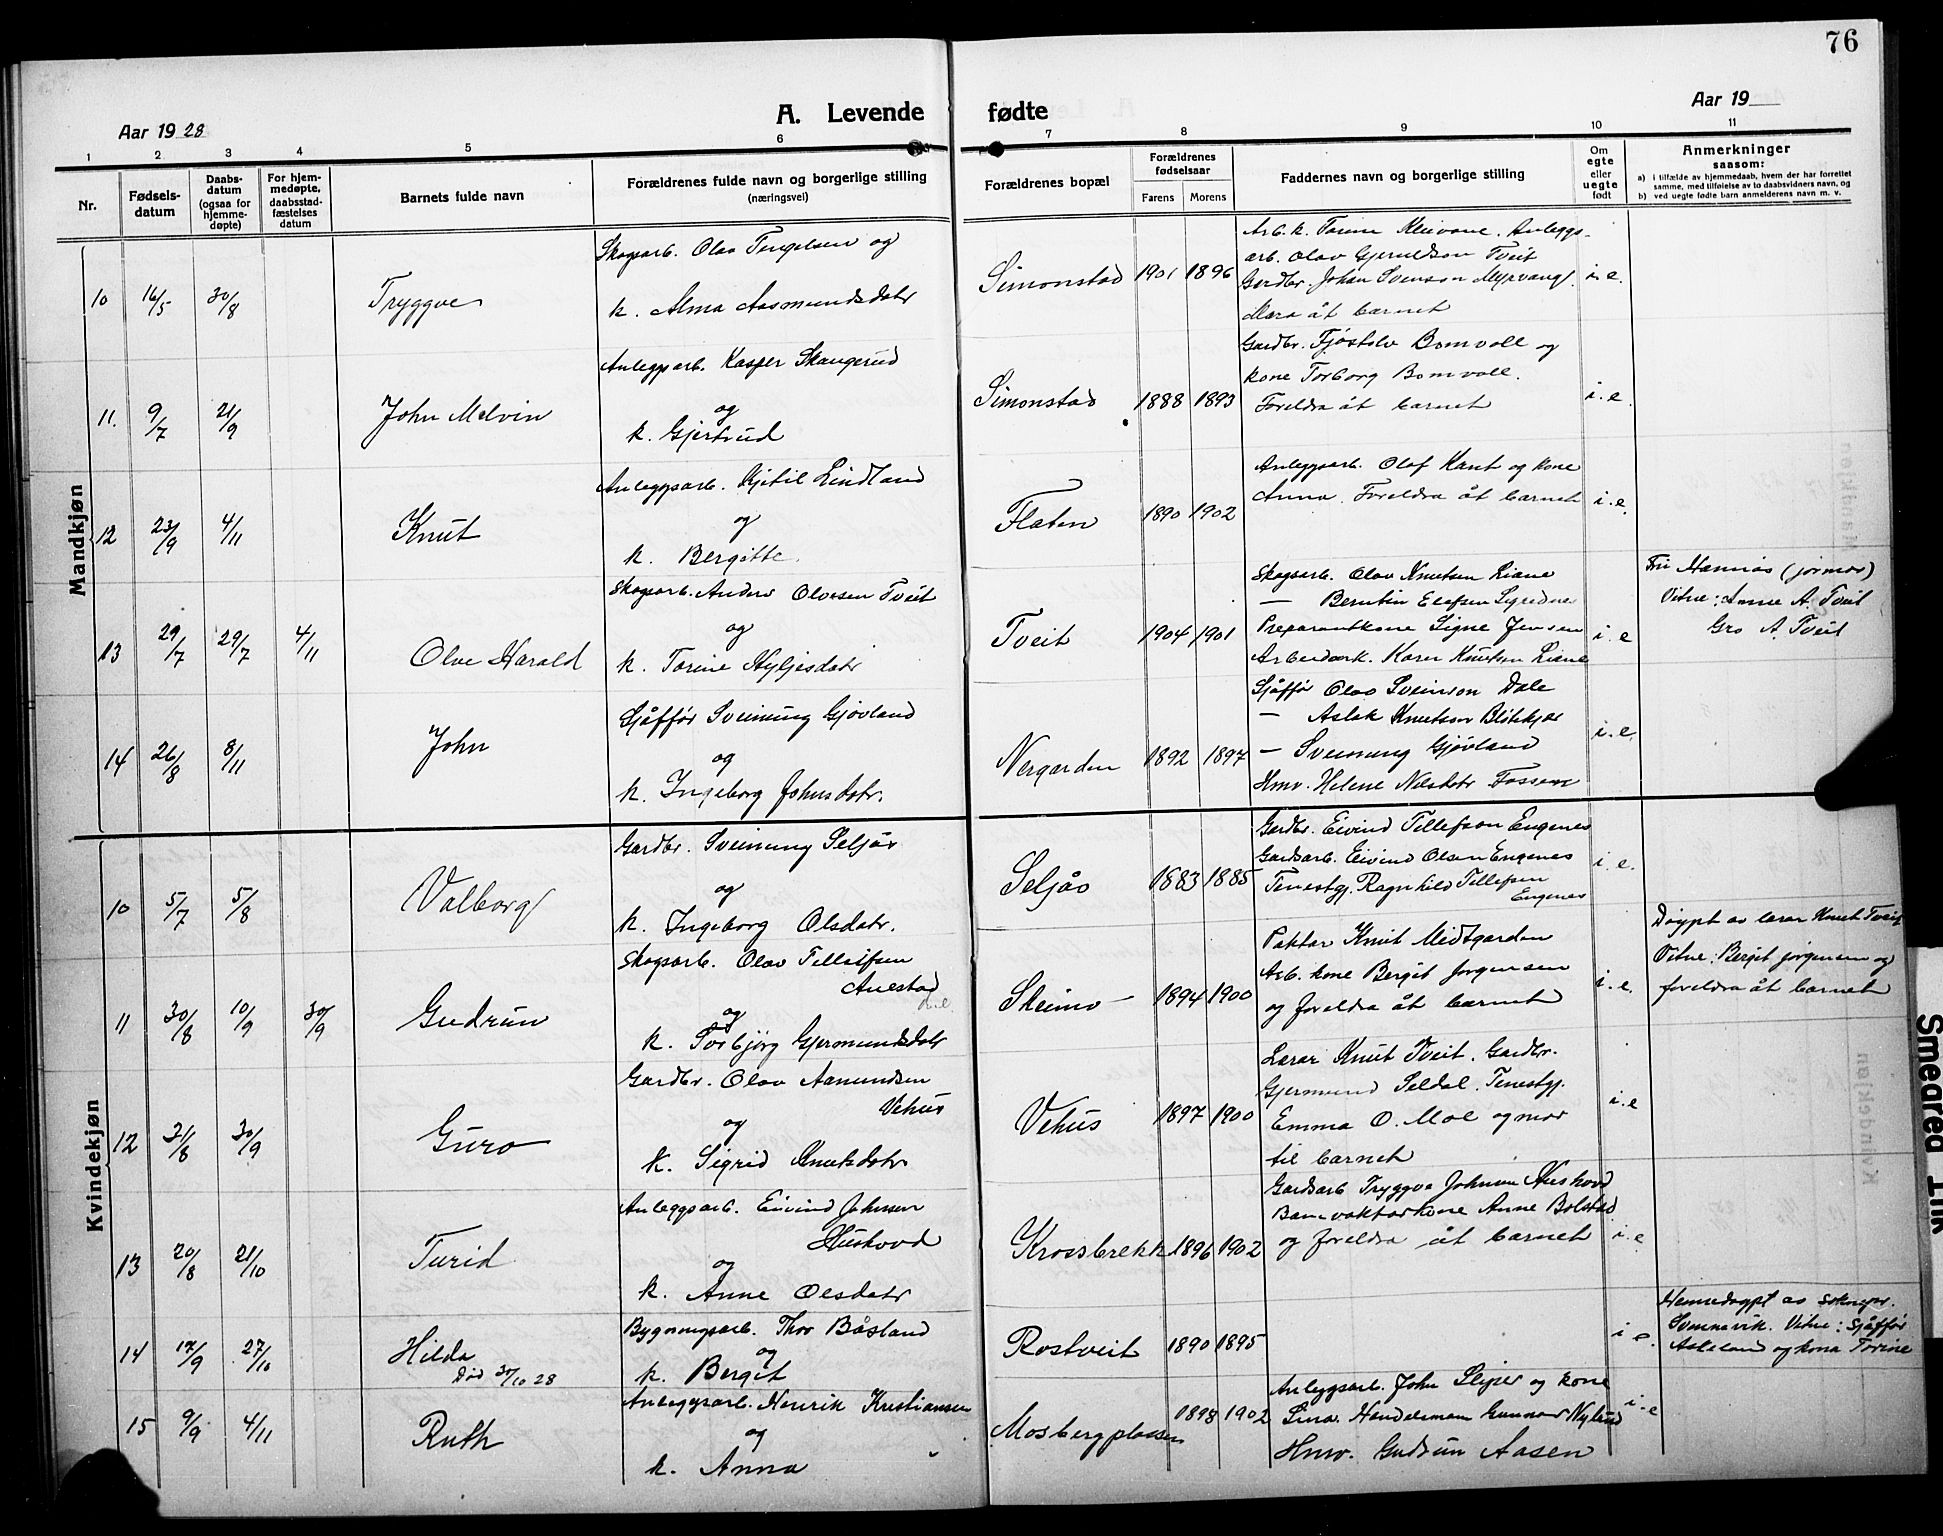 76
A. Levende fødte
Aar 1928
Aar 19
1 2 3 4 5 6 7 8 9 10 11
Nr.
Fødsels-
datum
Daabs-
datum
(ogsaa for
hjemme-
døpte)
For hjem-
medøpte,
daabsstad-
fæstelses
datum
Barnets fulde navn
Forældrenes fulde navn og borgerlige stilling
(næringsvei)
Forældrenes bopæl
Forældrenes
fødselsaar
Farens Morens
Faddernes navn og borgerlige stilling
Om
egte
eller
uegte
født
Anmerkninger
saasom:
a) i tilfælde av hjemmedaab, hvem der har forrettet
samme, med tilføielse av to daabsvidners navn, og
b) ved uegte fødte barn anmelderens navn m. v.
Mandkjøn
10 16/5 30/8 Tryggve
Skogsarb. Olav Tengelsen og
k. Alma Aasmundsdotr
Simonstad 1901 1896
Arb. k. Torine Kleivane. Anleggs-
arb. Olav Gjermundson Tveit
Gardbr. Johan Svenson Myrvang
Mora åt barnet
i.e.
11. 9/7 21/9 John Melvin
Anleggsarb. Kasper Skangerud
og
k. Gjertrud
Simonstad 1888 1893
Gardbr. Tjøstolv Bomvoll og
kone Torborg Bomvoll.
Foreldra åt barnet
i.e.
12 23/9 4/11 Knut
Anleggsarb. Kjetil Lindland
og
k. Bergitte.
Flaten 1890 1902
Anleggsarb. Olaf Kant og kone
Anna. Foreldra åt barnet
i.e.
13 29/7 29/7 4/11 Olve Harald
Skogsarb. Anders Olvesen Tveit
og
k. Torine Nyljosdotr
Tveit 1904 1901
Skogsarb. Olav Knutsen Liane
— Berntin Elefsen
Preparantkone Signe Jensen
Arbeidark. Karen Knutsen Liane
i.e
Fru Hamnås (jormor)
Vitne: Anne A. Tveit
Gro A. Tveit
14 26/8 8/11 John
Sjåffør Sveinung Gjøvland
og
k. Ingeborg Johnsdotr.
Nergarden 1892 1897
Sjåffør Olav Sveinson Dale
— Aslak Knutson Bløtekjær
— Sveinung Gjøvland
Hmv. Helene Nilsdotr Fossem
i.e.
Kvindekjøn
10 5/7 5/8 Valborg
Gardbr. Sveinung Seljås
og
k. Ingeborg Olsdotr.
Seljås 1883 1885
Gardbr. Eivind Tellefson Engenes
Gardsarb. Eivind Olsen Engenes
Tenestgj. Ragnhild Tellefsen
Engenes
i.e.
11 30/8 10/9 30/9 Gudrun
Skogsarb. Olav Tellefsen
Auestad
og
k. Torbjørg Gjermundsdotr
Skeimo 1894 1900
Paktar Knut Midtgarden
Arb. kone Bergit Jorgensen
og foreldra åt barnet
i.e.
Døypt av lærar Knut Tveit
Vitne: Bergit Jørgensen og
foreldra åt barnet
12 31/8 30/9 Guro
Gardbr. Olav Aanundsen
Vehus
og
k. Sigrid Knutsdotr
Vehus 1897 1900
Lærar Knut Tveit. Gardbr.
Gjermund Seldal. Tenestgj.
Emma O. Moe og mor
til barnet
i.e
13 20/8 21/10 Turid
Anleggsarb. Eivind Johnsen
Huskovd
og
k. Anne Olsdotr
Krossbrekk 1896 1902
Gardsarb Tryggve Johnsen Huskovd
Banevaktarkone Anne Bolstad
og foreldra åt barnet
i.e
14 17/9 27/10 Hilda
Død 30/10 28
Bygningsarb. Thor Båsland
og
k. Bergit
Rostveit 1890 1895
i e.
Hemedøypt av sokneprs.
Svennevik. Vitne: Sjåffør
Askeland og kona Torine
15 9/9 4/11 Ruth
Anleggsarb. Henrik Kristiansen
og
k. Anna
Mosbergplassen 1898 1902
Anleggsarb. John Sliper og kone
Lina. Handelsman Gunnar Nylund
Hmv. Gudrun Aasen
i.e
Smeared Ink